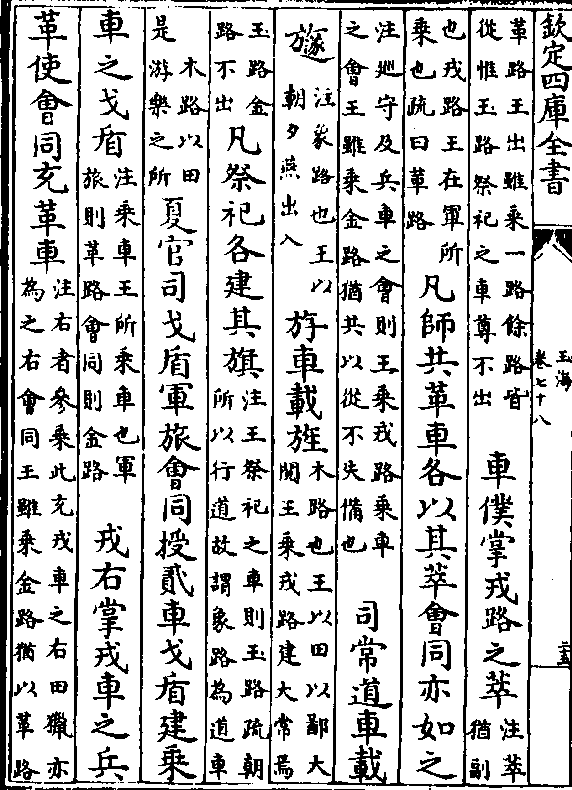 欽定四庫全書
玉海
卷七十八
革路王出雖乘一路餘路皆從惟玉路祭祀之車尊不出 車僕掌戎路之萃注萃猶副
也戎路王在軍所乘也疏曰革路凡師共革車各以其萃會同亦如之
注巡守及兵車之會則王乘戎路乘車之會王雖乘金路猶共以從不失備也 司常道車載
旞注象路也王以朝夕燕出入 斿車載旌木路也王以田以鄙大閱王乘戎路建大常焉
玉路金路不出凡祭祀各建其旗注王祭祀之車則玉路疏朝所以行道故謂象路為道車
木路以田是游樂之所夏官司戈盾軍旅會同授貳車戈盾建乘
車之戈盾注乘車王所乘車也軍旅則革路會同則金路 戎右掌戎車之兵
革使會同充革車注右者參乘此充戎車之右田獵亦為之右會同王雖乘金路猶以革路